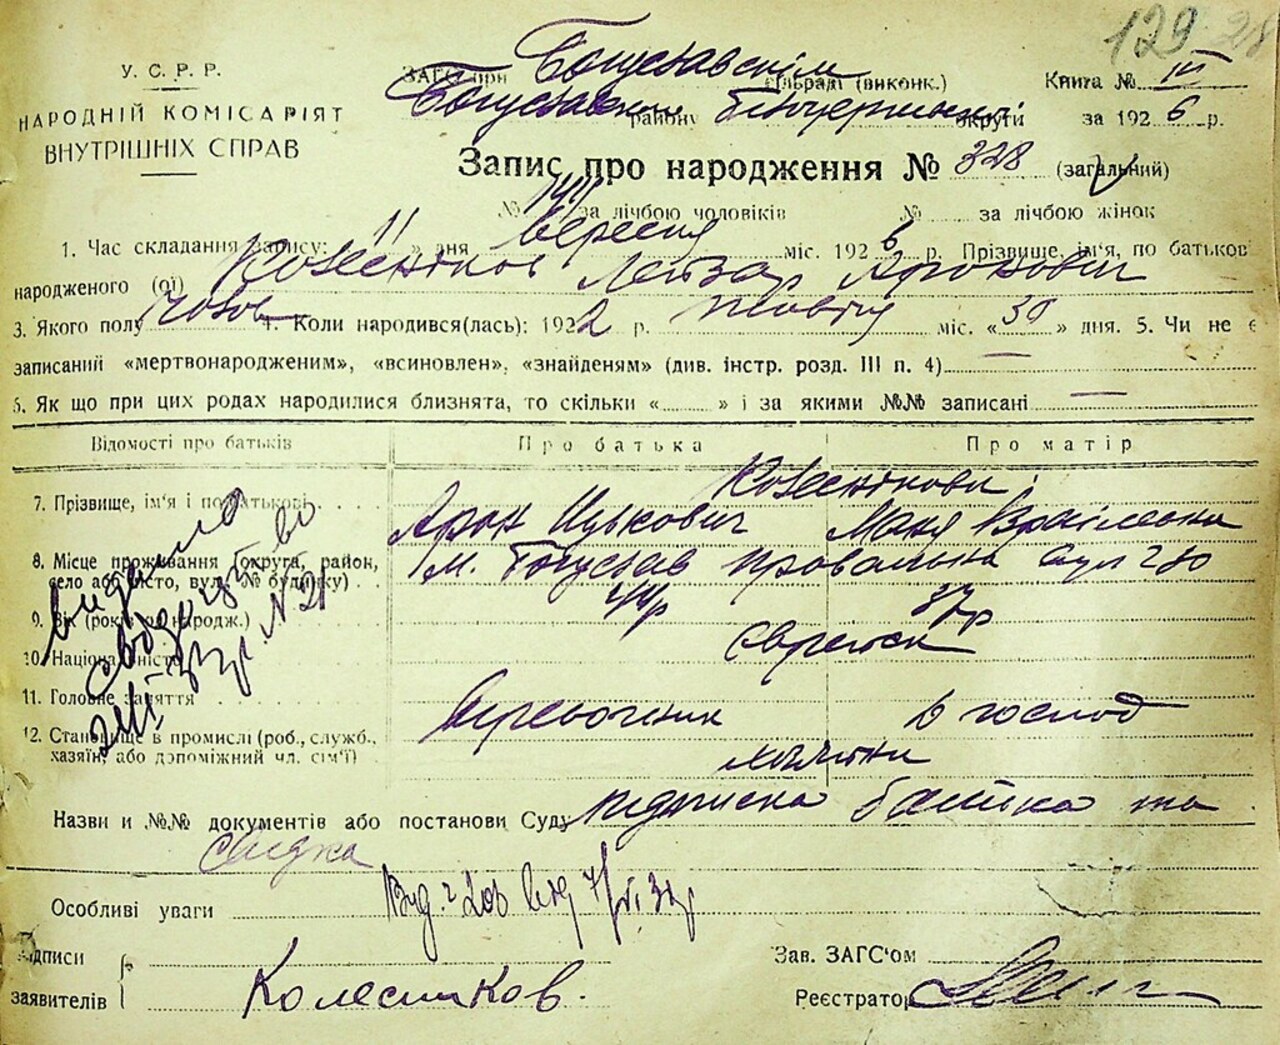 129 28
У. С. Р. Р.
НАРОДНІЙ КОМІСАРІЯТ
ВНУТРІШНІХ СПРАВ
ЗАГС при Богуславскім сільраді (виконк.) Книга № III
Богуславск району Білоцерківської округи за 1926 р.
Запис про народження № 328 (загальний)
№ за лічбою чоловіків № за лічбою жінок
1. Час складання запису: 11 » дня Вересня міс. 1926 р. Прізвище, ім'я, по батьков
народженого (ої) Колесніков Лейзар Аронович
3. Якого полу чолов 4. Коли народився(лась): 1922 р. жовтня міс. «30» дня. 5. Чи не є
записаний «мертвонародженим», «всиновлен», «знайденям» (див. інстр. розд. III п. 4) —
6. Як що при цих родах народилися близнята, то скільки « » і за якими №№ записані —
Відомості про батьків Про батька Про матір
7. Прізвище, ім'я і по батькові Колеснікови
Арон Ицькович Маня Сраілевна
8. Місце проживання (округа, район, село або місто, вул., № будинку) м. Богуслав провальна вул 280
9. Вік (років од народж.) 44р 37р
10. Національність Єврейск
11. Головне заняття в господ
12. Становище в промислі (роб., служб.,
хазяїн, або допоміжний чл. сім'ї)
Видано
Назви и №№ документів або постанови Суду підписка батька та
свідка
Особливі уваги
Підписи
заявителів Колесников.
Зав. ЗАГС'ом
Реєстратор